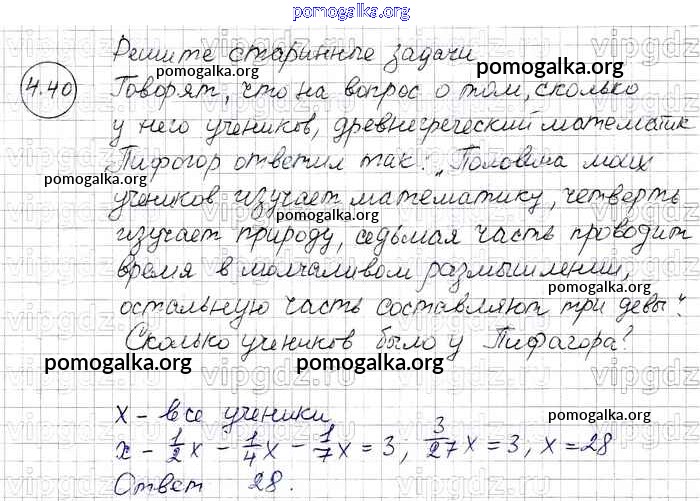 pomogalka.org
Решите старинные задачи
pomogalka.org
4.40 Говорят, что на вопрос о том, сколько
у него учеников, древнегреческий математик
pomogalka.org
Пифогор ответил так: „Половина моих
pomogalka.org
учеников изучает математику, четверть
pomogalka.org
изучает природу, седьмая часть проводит
время в молчаливом размышлении,
pomogalka.org
остальную часть составляют три девы“.
Сколько учеников было у Пифагора?
pomogalka.org pomogalka.org pomogalka.org
x – все ученики
pomogalka.org
x - 1/2 x - 1/4 x - 1/7 x = 3; 3/27 x = 3, x = 28
Ответ 28.